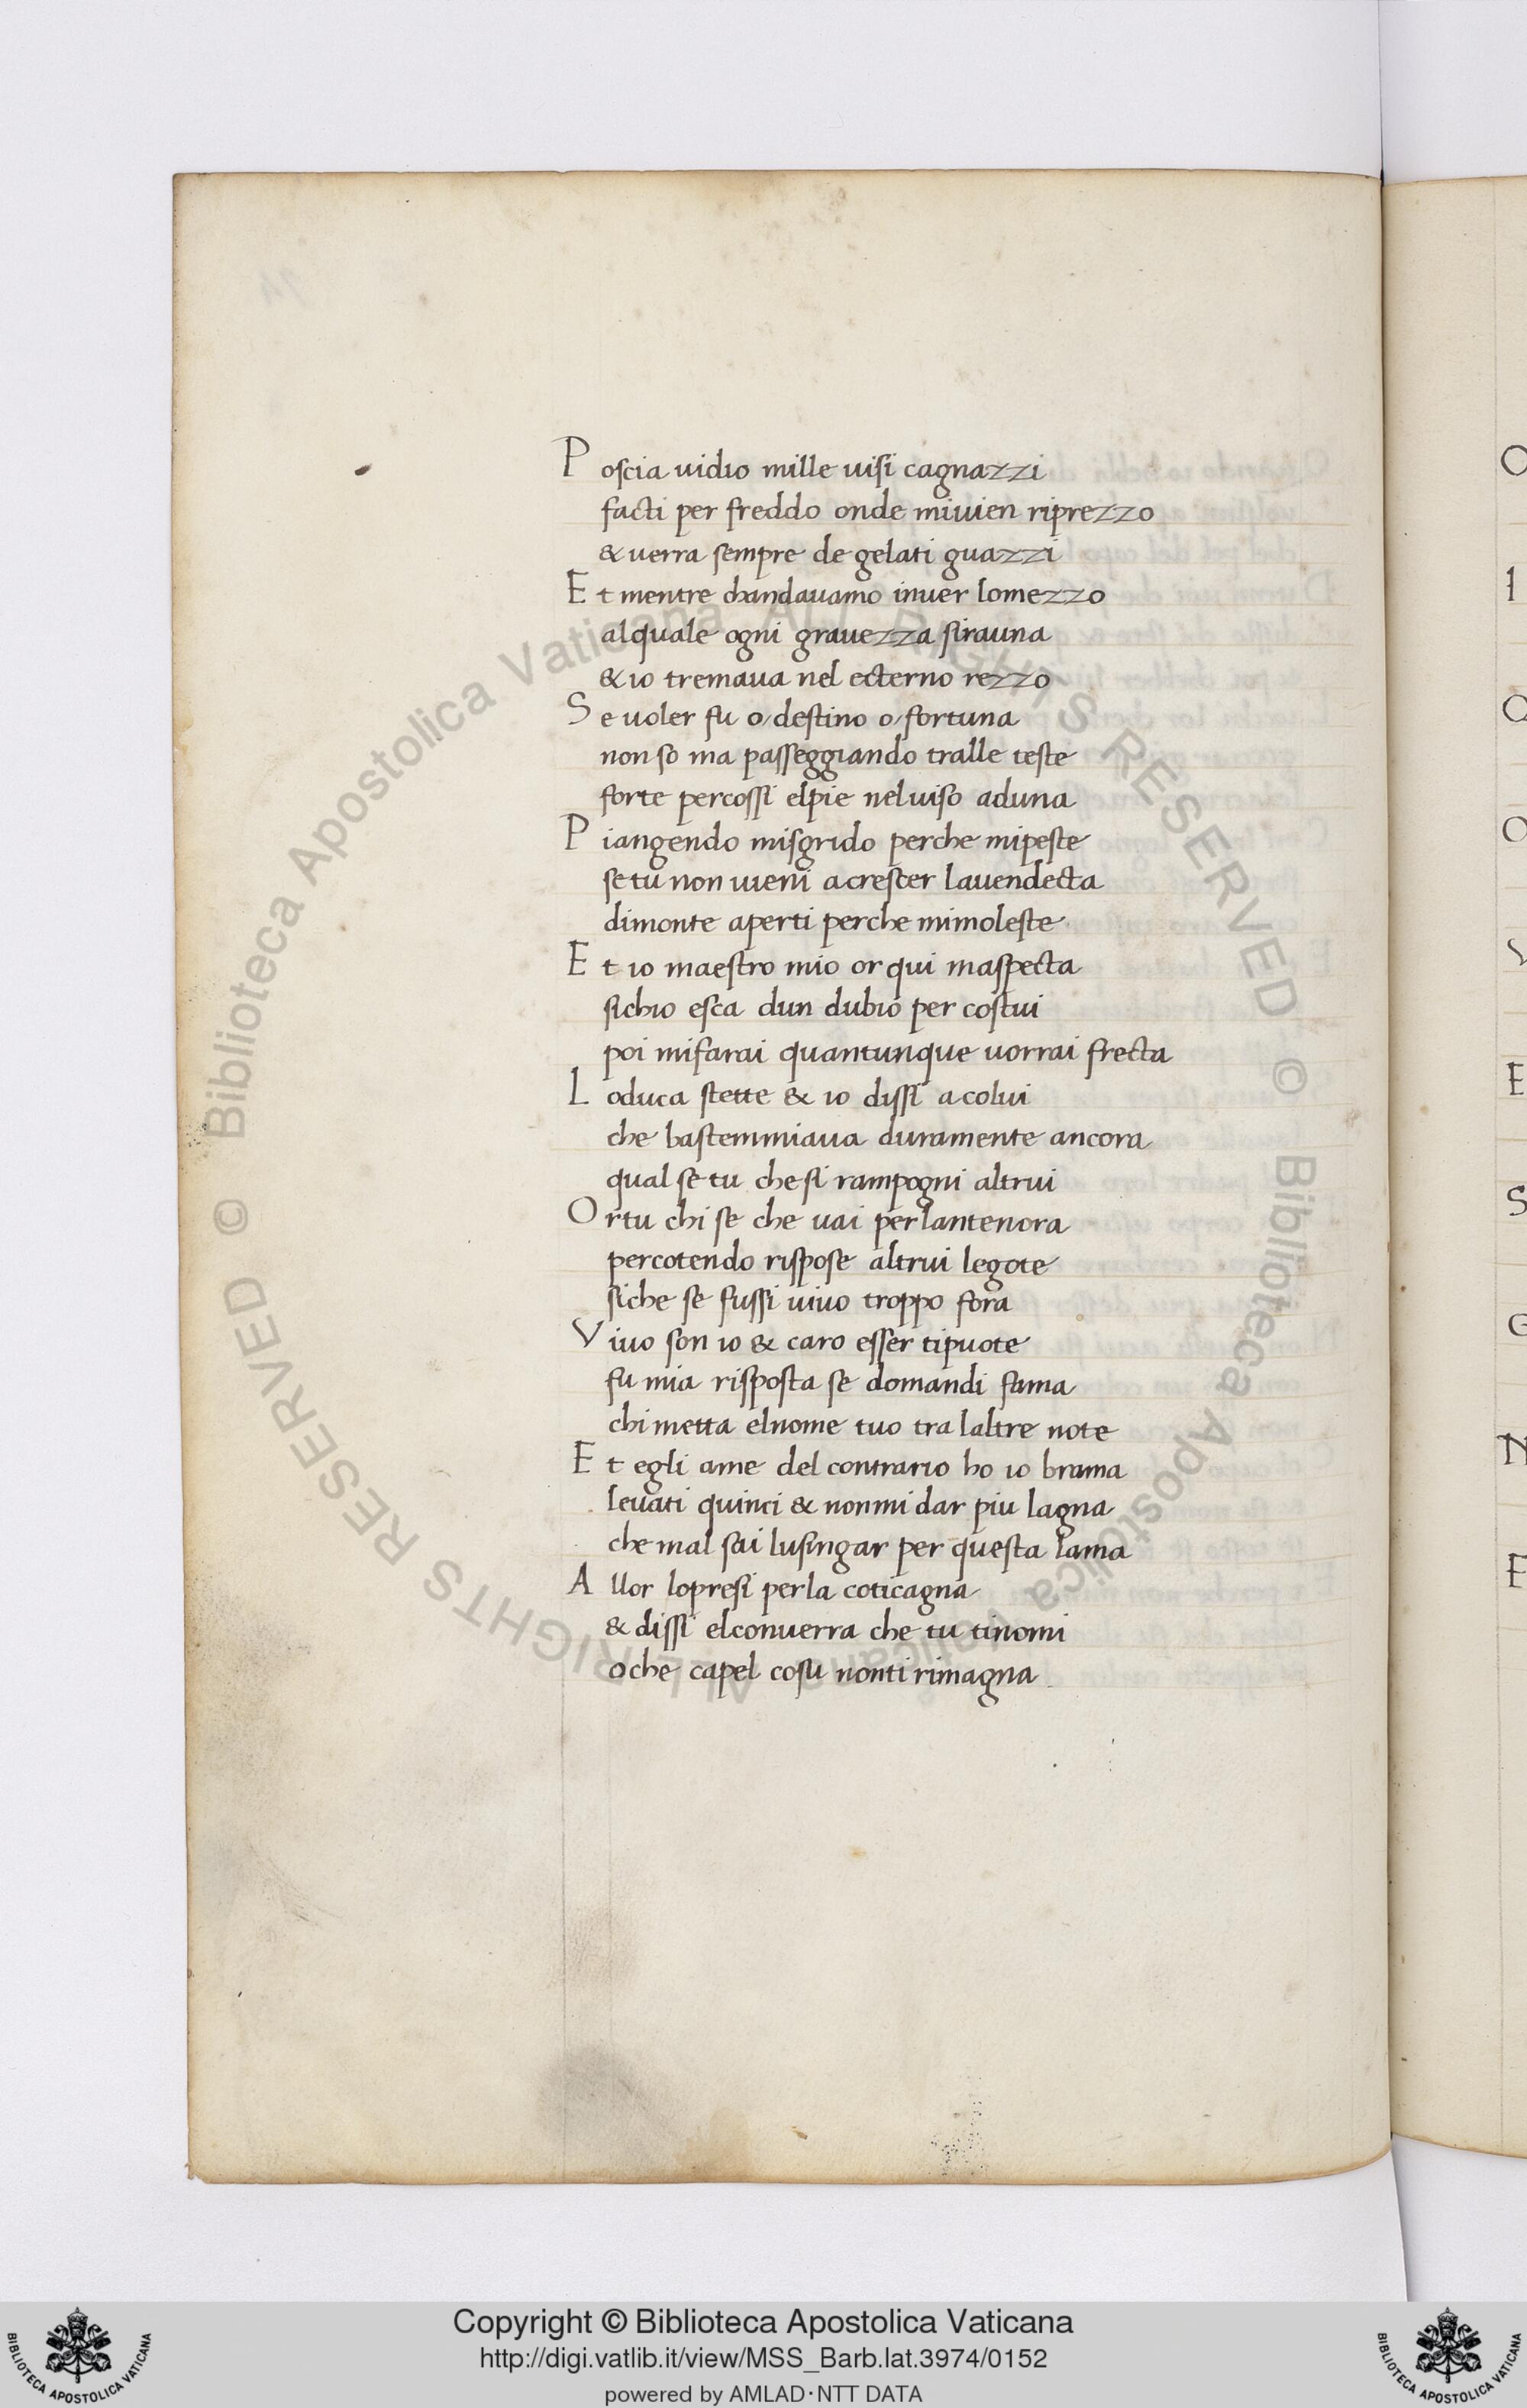 Poscia uidio mille uisi cagnazzi
facti per freddo onde miuien riprezzo
& uerra sempre de gelati guazzi
Et mentre chandauamo inuer lomezzo
alquale ogni grauezza sirauna
& io tremaua nel ecterno rezzo
Se uoler fu o/ destino o/ fortuna
non so ma passeggiando tralle teste
forte percossi elpie neluiso aduna
Piangendo misgrido perche mipeste
se tu non uieni acrescer lauendecta
dimonte aperti perche mimoleste
Et io maestro mio or qui maspecta
sichio esca dun dubio per costui
poi mifarai quantunque uorrai frecta
Loduca stette & io dissi acolui
che bastemmiaua duramente ancora
qual se tu che si rampogni altrui
Ortu chi se che uai perlantenora
percotendo rispose altrui legote
siche se fussi uiuo troppo fora
Viuo son io & caro esser tipuote
fu mia risposta se domandi fama
chi metta elnome tuo tra laltre note
Et egli ame del contrario ho io brama
leuati quinci & nonmi dar piu lagna
che mal sai lusingar per questa lama
Allor lopresi perla coticagna
& dissi elconuerra che tu tinomi
oche capel cosu nonti rimagna
O
I
Q
O
V
E
S
G
N
F
© Biblioteca Apostolica Vaticana ALL RIGHTS RESERVED © Biblioteca Apostolica Vaticana ALL RIGHTS RESERVED
Copyright © Biblioteca Apostolica Vaticana
http://digi.vatlib.it/view/MSS_Barb.lat.3974/0152
powered by AMLAD·NTT DATA
BIBLIOTECA APOSTOLICA VATICANA
BIBLIOTECA APOSTOLICA VATICANA